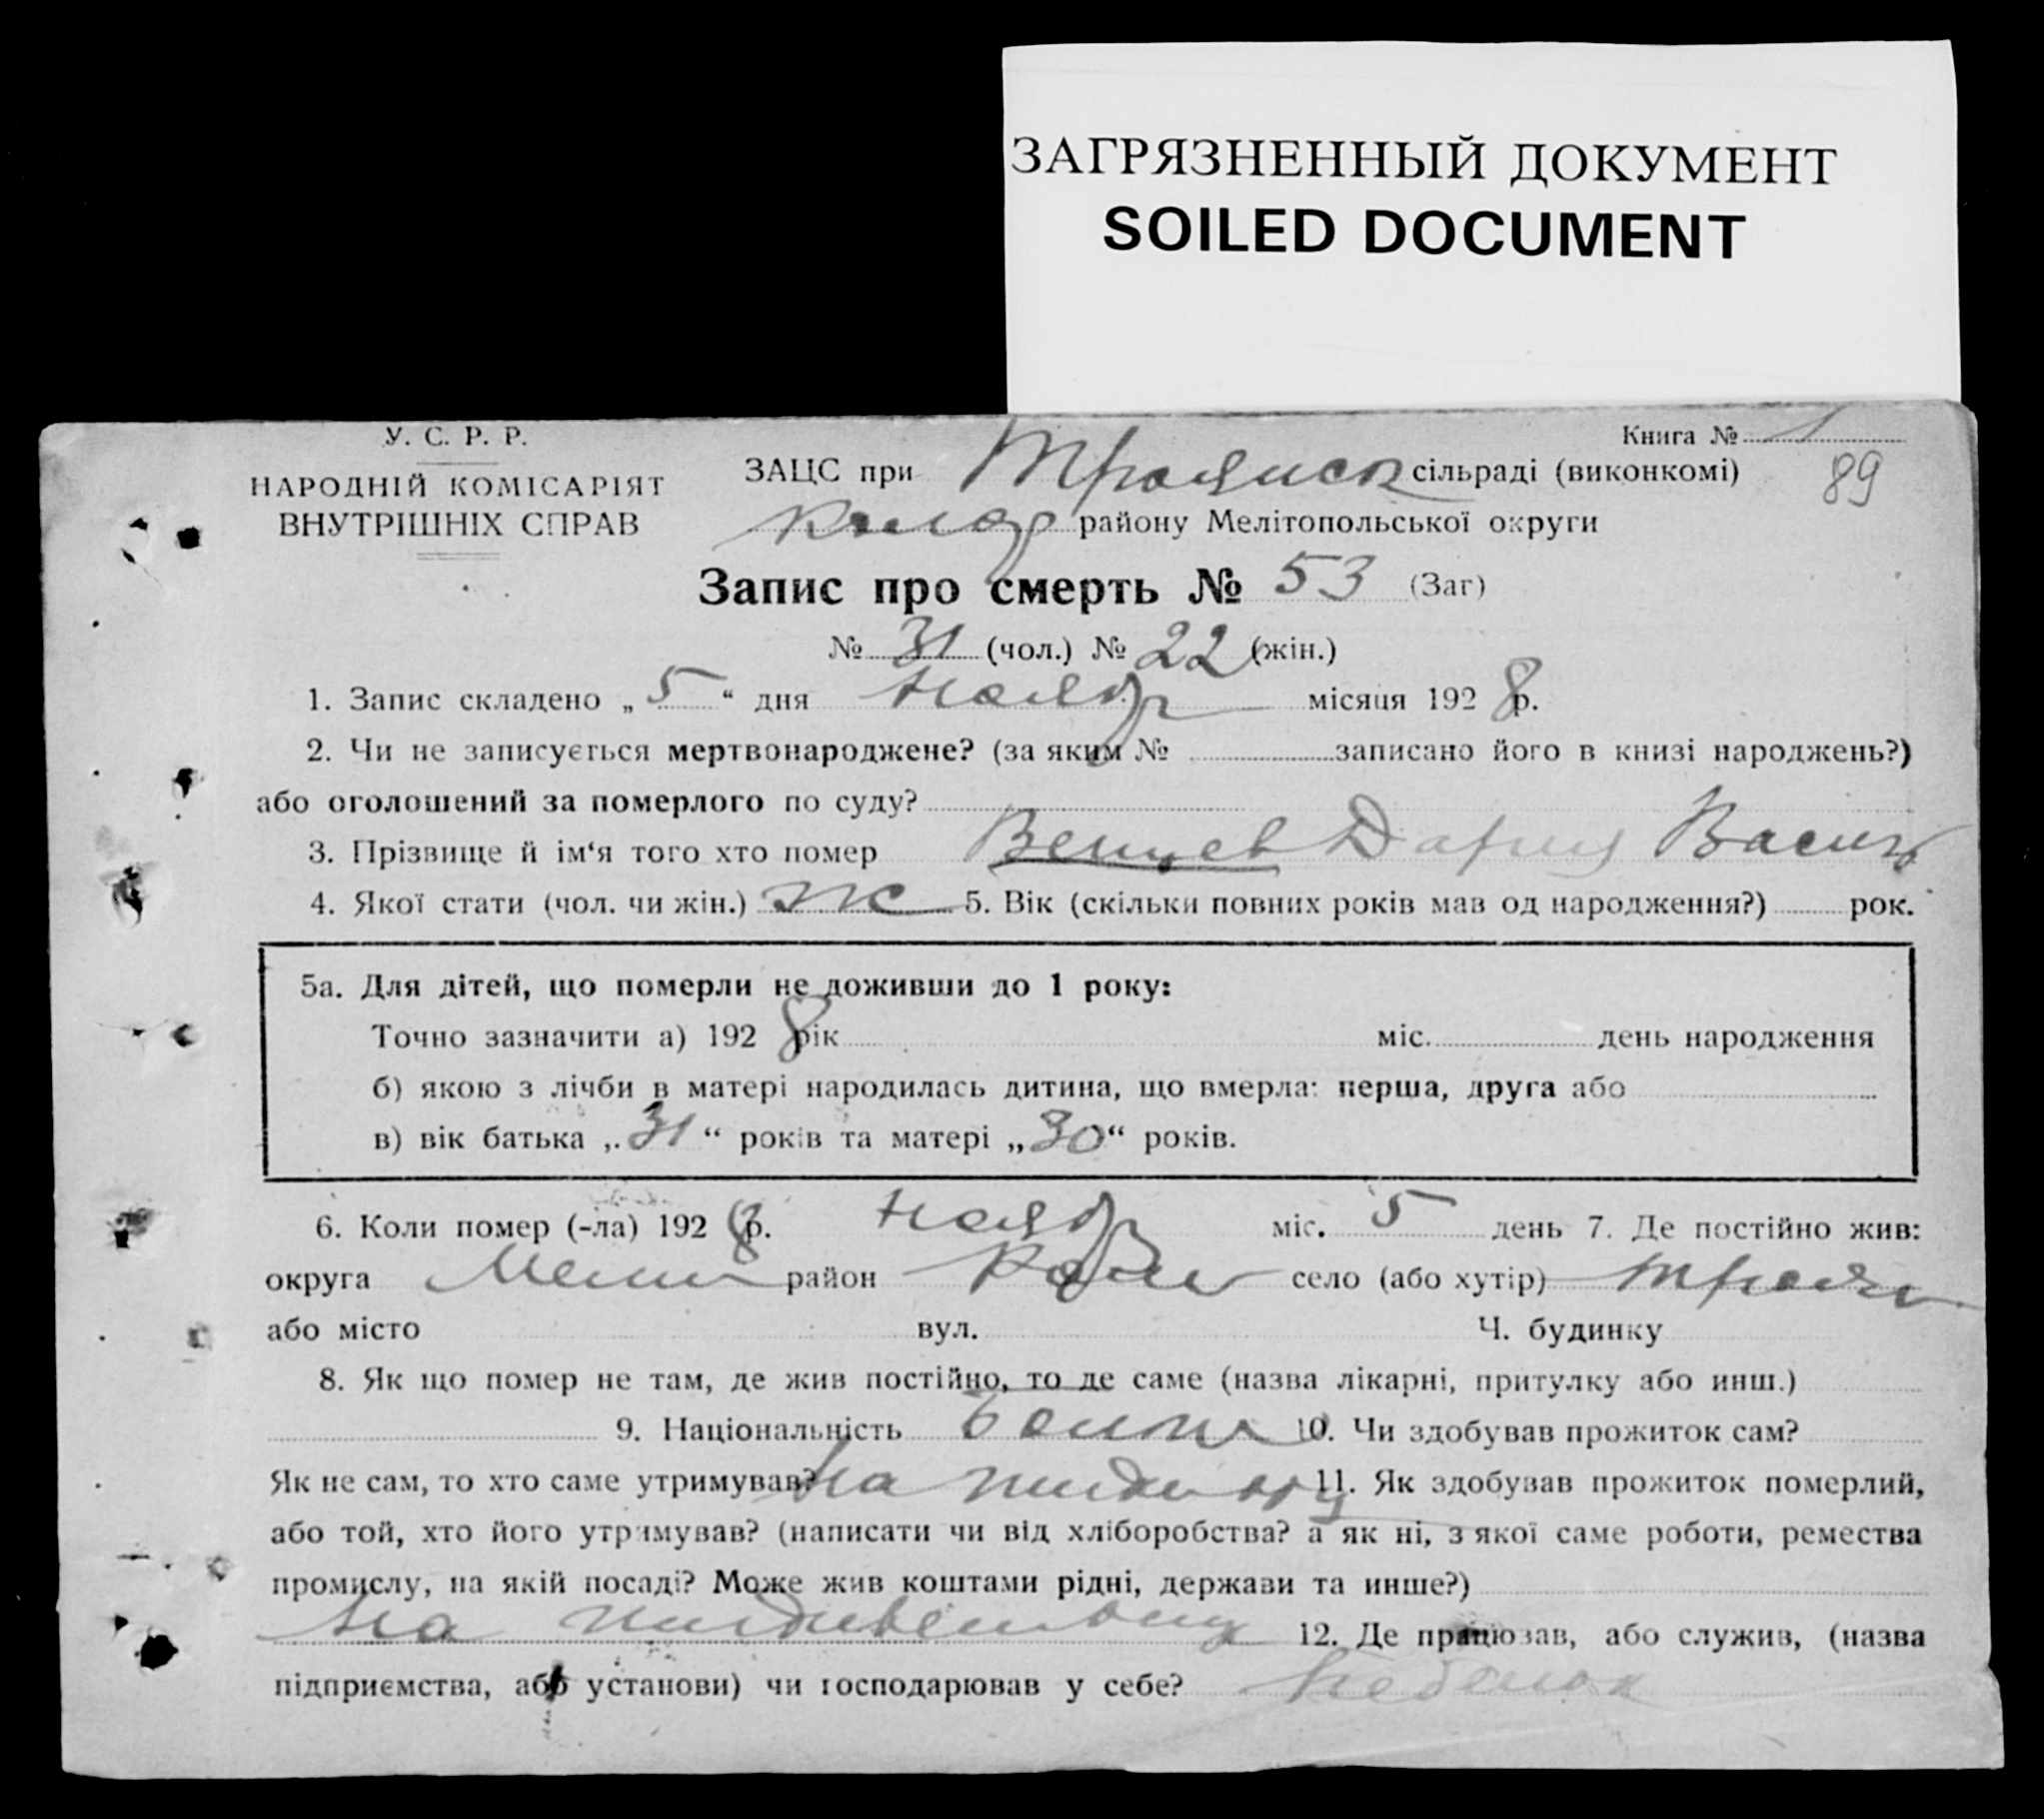 ЗАГРЯЗНЕННЫЙ ДОКУМЕНТ
SOILED DOCUMENT
У. С. Р. Р.
НАРОДНІЙ КОМІСАРІЯТ
ВНУТРІШНІХ СПРАВ
Книга № 1
89
ЗАЦС при Троянск сільраді (виконкомі)
району Мелітопольської округи
Запис про смерть № 53 (Заг)
№ 31 (чол.) № 22 (жін.)
1. Запис складено „ 5 “ дня Ноябр місяця 192 8 р.
2. Чи не записується мертвонароджене? (за яким № записано його в книзі народжень?)
або оголошений за померлого по суду?
3. Прізвище й ім‘я того хто помер Дария Васил
4. Якої стати (чол. чи жін.) ж 5. Вік (скільки повних років мав од народження?) рок.
5а. Для дітей, що померли не доживши до 1 року:
Точно зазначити а) 192 8 рік міс. день народження
б) якою з лічби в матері народилась дитина, що вмерла: перша, друга або
в) вік батька „ 31 “ років та матері „ 30 “ років.
6. Коли помер (-ла) 192 8 р. Ноябр міс. 5 день 7. Де постійно жив:
округа Мелит район село (або хутір) Троян
або місто вул. Ч. будинку
8. Як що помер не там, де жив постійно, то де саме (назва лікарні, притулку або инш.)
9. Національність Болг 10. Чи здобував прожиток сам?
Як не сам, то хто саме утримував? На 11. Як здобував прожиток померлий,
або той, хто його утримував? (написати чи від хліборобства? а як ні, з якої саме роботи, ремества
промислу, на якій посаді? Може жив коштами рідні, держави та инше?)
На иждивении 12. Де працював, або служив, (назва
підприємства, або установи) чи господарював у себе? Ребенок